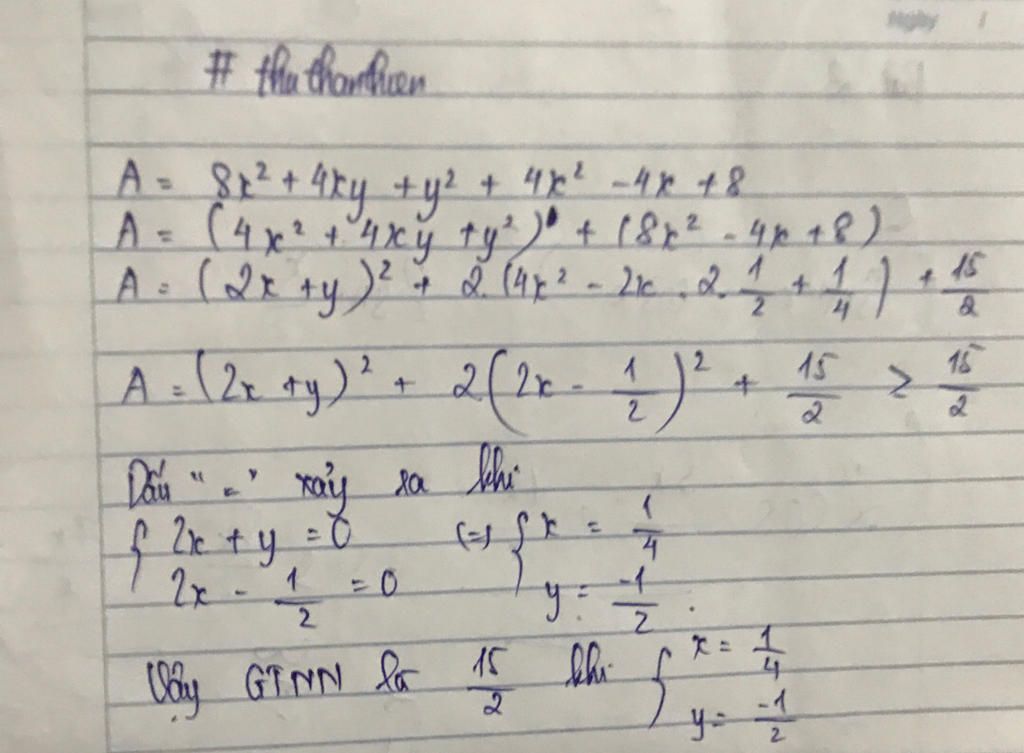 Ngày
# thuthanthien
A = 8x² + 4xy + y² + 4x² - 4x + 8
A = (4x² + 4xy + y²) + (8x² - 4x + 8)
A = (2x + y)² + 2.(4x² - 2x . 2. 1/2 + 1/4) + 15/2
A = (2x + y)² + 2(2x - 1/2)² + 15/2 ≥ 15/2
Dấu "=" xảy ra khi
{ 2x + y = 0 (=) { x = 1/4
2x - 1/2 = 0 y = -1/2 .
Vậy GTNN là 15/2 khi { x = 1/4
y = -1/2